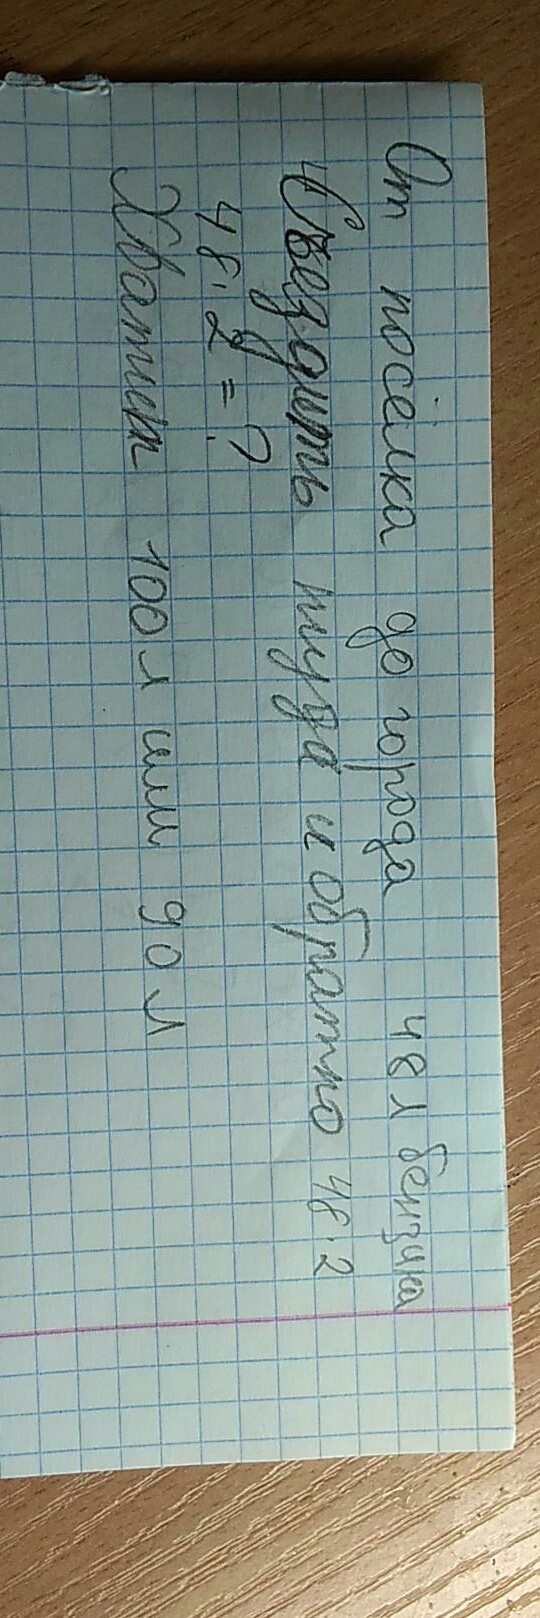 От посёлка до города 48 л бензина
Съездить туда и обратно 48·2
48·2=?
Хватит 100 л или 90 л